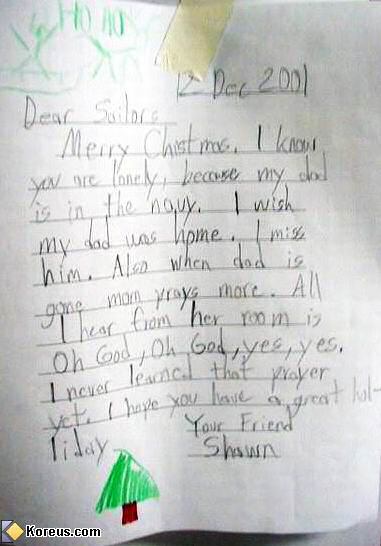 HO HO
12 Dec 2001
Dear Sailors
Merry Chistmas. I know
you are lonely, because my dad
is in the navy. I wish
my dad was home. I miss
him. Also when dad is
gone mom prays more. All
I hear from her room is
Oh God, Oh God, yes, yes.
I never learned that prayer
yet. I hope you have a great hol-
iday
Your Friend
Shawn
Koreus.com